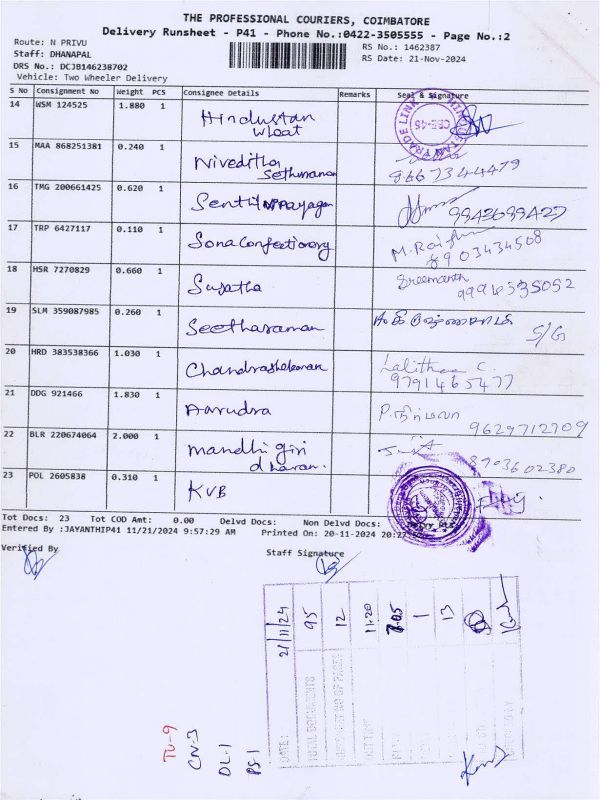 THE PROFESSIONAL COURIERS, COIMBATORE
Delivery Runsheet - P41 - Phone No.:0422-3505555 - Page No.:2
Route: N PRIVU
RS No.: 1462387
Staff: DHANAPAL
RS Date: 21-Nov-2024
DRS No.: DCJB146238702
Vehicle: Two Wheeler Delivery
S No Consignment No Weight PCS Consignee Details Remarks Seal & Signature
14 WSM 124525 1.880 1 Hindustan
Wheat
15 MAA 868251381 0.240 1 Niveditha
Sethuraman 8667344479
16 TMG 200661425 0.620 1 9942699427
17 TRP 6427117 0.110 1 Sona Confectionery
8903434508
18 HSR 7270829 0.660 1 Sujatha Sreemanth
9994535052
19 SLM 359087985 0.260 1 Seetharaman
S/G
20 HRD 383538366 1.030 1 Chandrashekaran Lalithaa C.
9791465477
21 DDG 921466 1.830 1 Aarudra P. நிர்மலா
9629712709
22 BLR 220674064 2.000 1 mandhi giri
dharan. 8903602380
23 POL 2605838 0.310 1 KVB
Tot Docs: 23 Tot COD Amt: 0.00 Delvd Docs: Non Delvd Docs:
Entered By :JAYANTHIP41 11/21/2024 9:57:29 AM Printed On: 20-11-2024
Verified By Staff Signature
DATE: 21/11/24
TOTAL DOCUMENTS 95
12
11.20
1
13
TU-9
CN-3
DL-1
PS-1